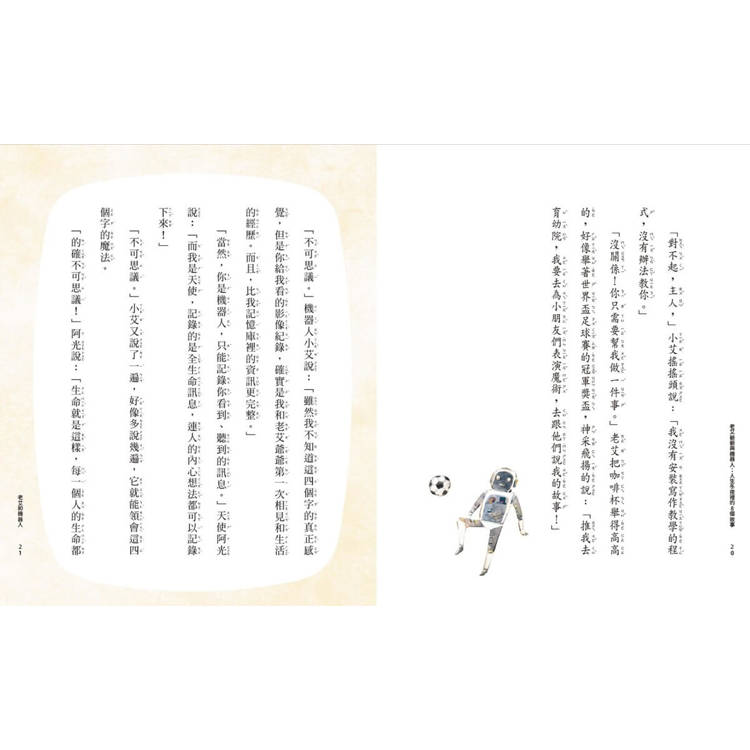 「對不起，主人，」小艾搖搖頭說：「我沒有安裝寫作教學的程
式，沒有辦法教你。」
「沒關係！你只需要幫我做一件事。」老艾把咖啡杯舉得高高
的，好像舉著世界盃足球賽的冠軍獎盃，神采飛揚的說：「推我去
育幼院，我要去為小朋友們表演魔術，去跟他們說我的故事！」
20
「不可思議。」機器人小艾說：「雖然我不知道這四個字的真正感
覺，但是你給我看的影像紀錄，確實是我和老艾爺爺第一次相見和生活
的經歷。而且，比我記憶庫裡的資訊更完整。」
「當然，你是機器人，只能記錄你看到、聽到的訊息。」天使阿光
說：「而我是天使，記錄的是全生命訊息，連人的內心想法都可以記錄
下來！」
「不可思議。」小艾又說了一遍，好像多說幾遍，它就能領會這四
個字的魔法。
「的確不可思議！」阿光說：「生命就是這樣，每一個人的生命都
老艾和機器人
21